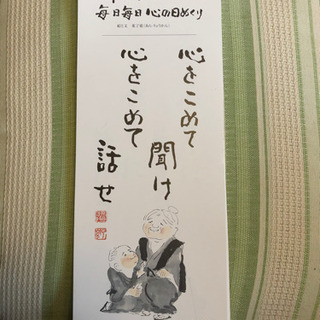 毎日毎日心の日めくり
心をこめて
聞け
心をこめて
話せ